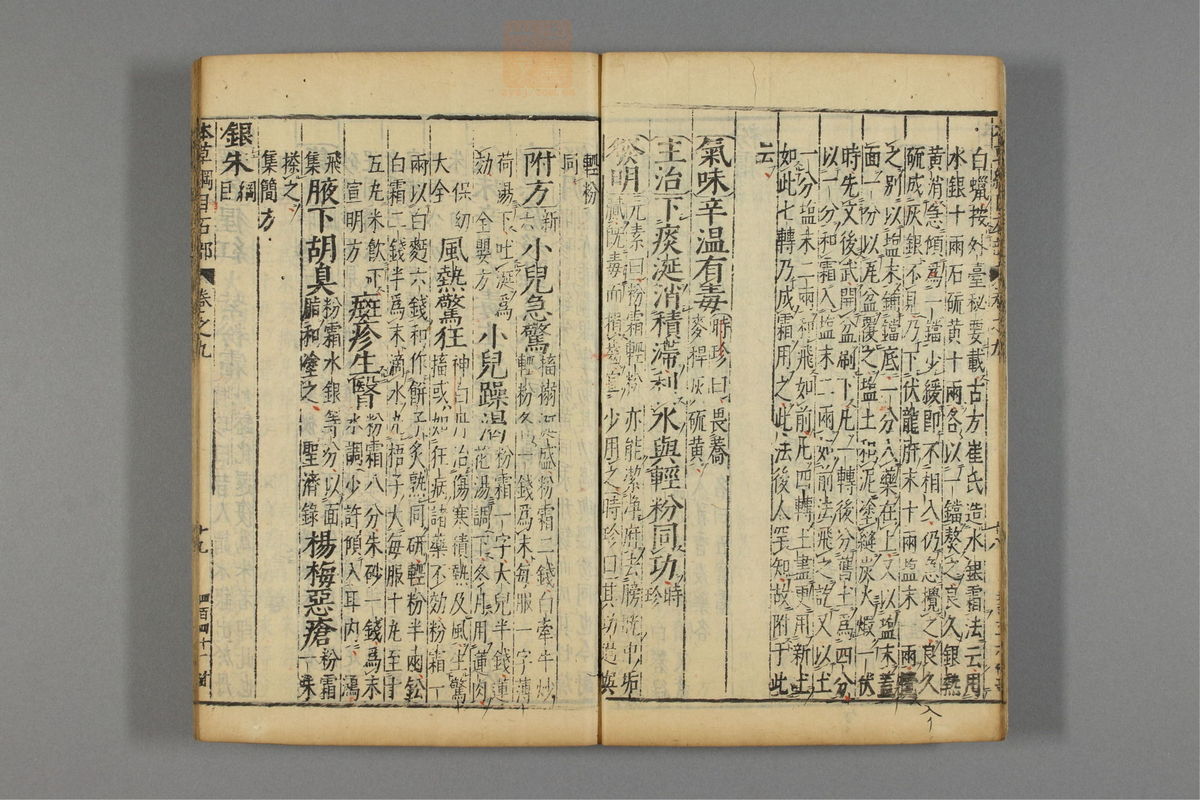 白蠟按外臺秘要載古方崔氏造水銀霜法云用
水銀十兩石硫黃十兩各以一鐺熬之良久銀熱
黃消急傾爲一鐺少緩即不相入仍急攪之良久
硫成灰銀不見乃下伏龍肝末十兩鹽末一兩攪
之別以鹽末鋪鐺底一分入藥在上又以鹽末蓋
面一分以瓦盆覆之鹽土和泥塗縫炭火煅一伏
時先文後武開盆刷下凡一轉後分舊土爲四分
以一分和霜入鹽末二兩如前法飛之訖又以土
一分鹽末二兩和飛如前凡四轉土盡更用新土
如此七轉乃成霜用之此法後人罕知故附于此
云
氣味辛溫有毒時珍曰畏蕎
麥稈灰硫黃
主治下痰涎消積滯利水與輕粉同功時珍
發明元素曰粉霜輕粉亦能潔淨府去膀胱中垢
膩既毒而損齒宜少用之時珍曰其功過與
輕粉
同
附方新六小兒急驚搐搦涎盛粉霜二錢白牽牛炒
輕粉各一錢爲末每服一字薄
荷湯下吐涎爲
効 全嬰方小兒躁渴粉霜一字大兒半錢蓮
花湯調下冬月用蓮肉
保幼
大全風熱驚狂神白丹治傷寒積熱及風生驚
搐或如狂病諸藥不効粉霜一
兩以白麪六錢和作餅子炙熟同研輕粉半兩鉛
白霜二錢半爲末滴水丸梧子大每服十丸至十
五丸米飲下
宣明方斑疹生瞖粉霜八分朱砂一錢爲末
水調少許傾入耳內
鴻飛
集腋下胡臭粉霜水銀等分以面
脂和塗之 聖濟錄楊梅惡瘡粉霜
一味
搽之
集簡方
銀朱綱目
本草綱目石部 卷之九 十九